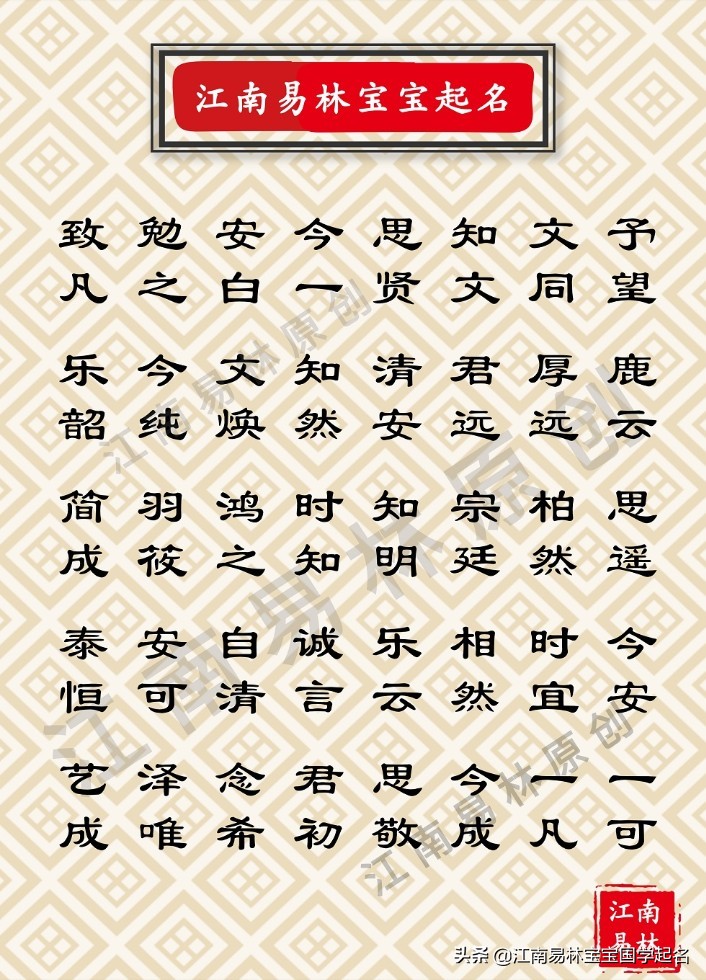 江南易林宝宝起名
致 勉 安 今 思 知 文 予
凡 之 白 一 贤 文 同 望
乐 今 文 知 清 君 厚 鹿
韶 纯 焕 然 安 远 远 云
简 羽 鸿 时 知 宗 柏 思
成 筱 之 知 明 廷 然 遥
泰 安 自 诚 乐 相 时 今
恒 可 清 言 云 然 宜 安
艺 泽 念 君 思 今 一 一
成 唯 希 初 敬 成 凡 可
江南易林原创
江南易林原创
江南易林原创
江南
易林
头条 @江南易林宝宝国学起名